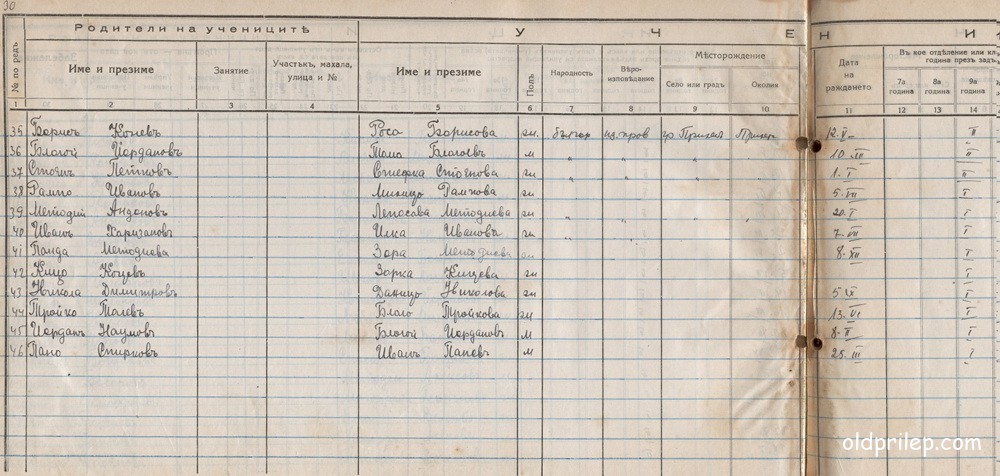 30
Родители на ученицитѣ У Ч Е Н И
№ по редъ Име и презиме Занятие Участъкъ, махала, улица и № Име и презиме Полъ Народность Вѣро-изповѣдание Мѣсторождение Село или градъ Околия Дата на раждането Въ кое отдѣление или кл. година презъ задъ. 7а година 8а година 9а година
1 2 3 4 5 6 7 8 9 10 11 12 13 14
35 Борисъ Коневъ Роса Борисова ж. българ из. прав гр Прилеп Прилеп 12. V II
36 Благой Йордановъ Тома Благоевъ м " " " " 10. XII II
37 Стоянъ Петковъ Стефка Стоянова ж " " " " 1. I II
38 Рампо Ивановъ Милица Рампова ж " " " " 5. VII I
39 Методий Андоновъ Лепосава Методиева ж " " " " 20. I I
40 Иванъ Харизановъ Илка Иванова ж 7. VII I
41 Панда Методиева Зора Методиева 8. XII I
42 Кицо Коцевъ Зорка Кицева ж I
43 Никола Димитровъ Даница Николова ж 5 IX I
44 Тройко Талевъ Благо Тройкова ж 13. VI I
45 Йорданъ Наумовъ Благой Йордановъ м 8. II I
46 Папо Спирковъ Иванъ Паповъ м 25. III I
oldprilep.com